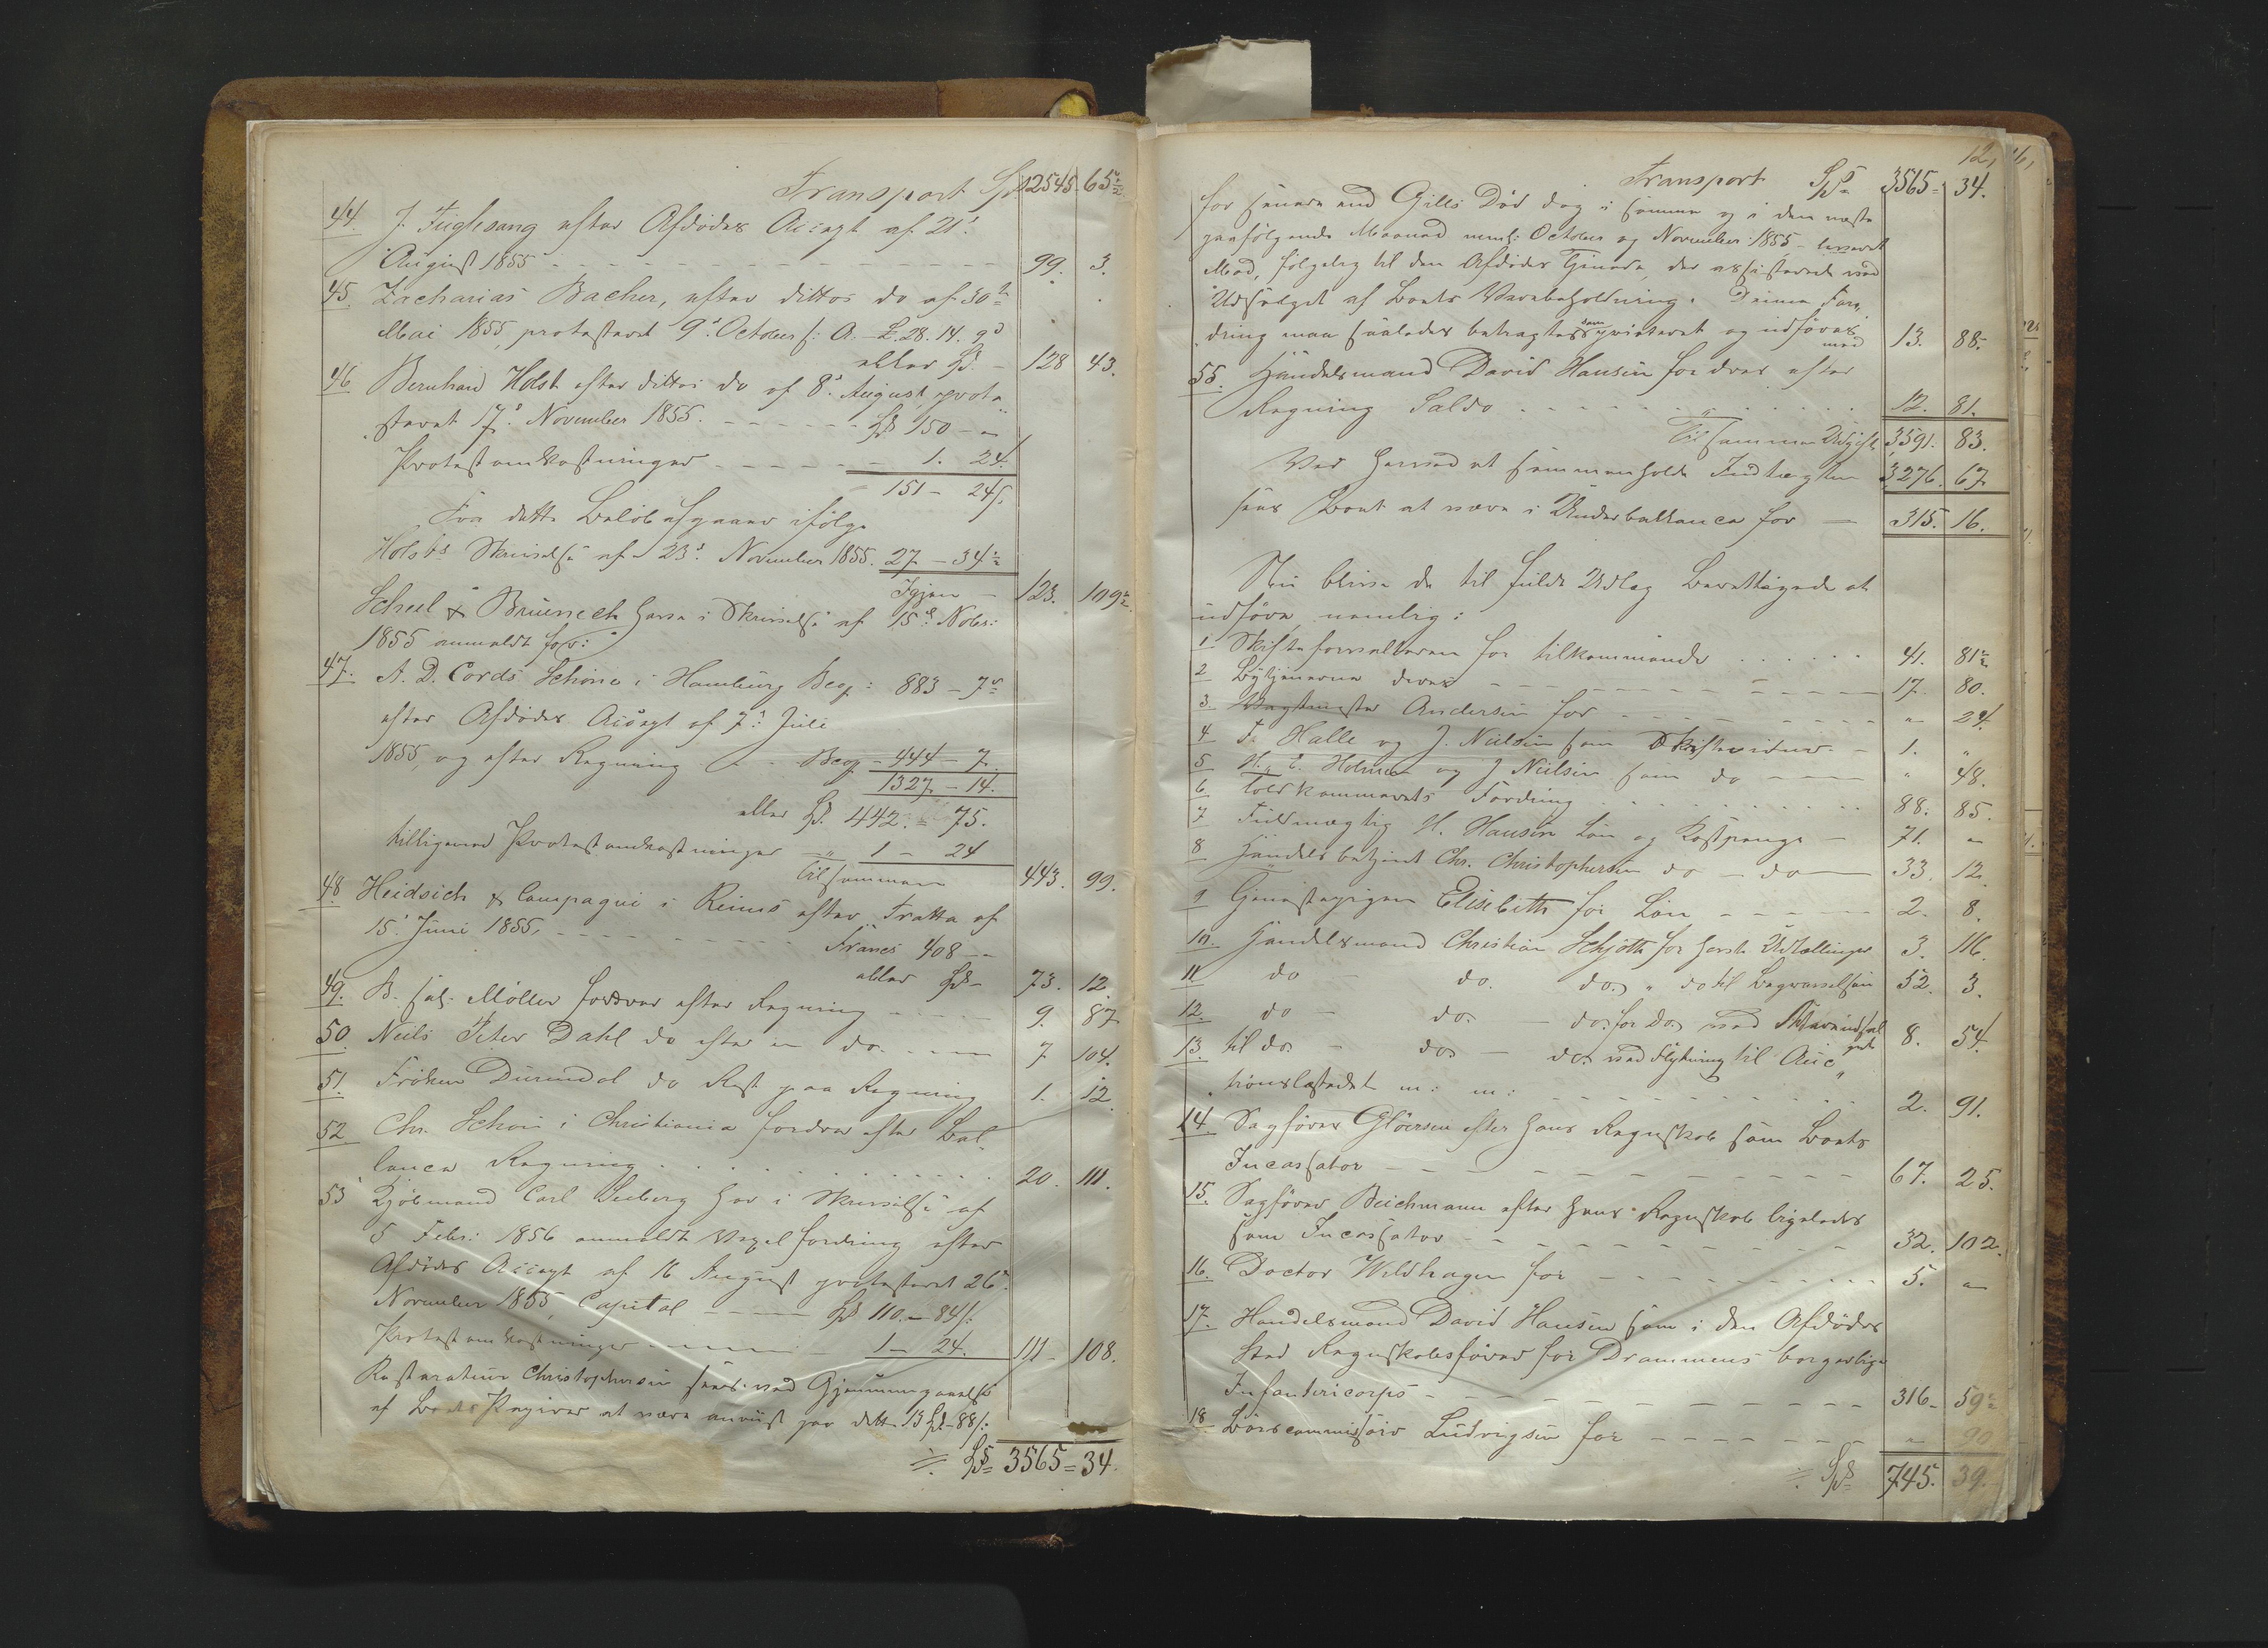 Transport Spd 2545 65½
44. J. Fuglesang efter Afdødes Accept af 21de
August 1855 - - - 99. 3.
45. Zacharias Bacher, efter dittos do af 30te
Mai 1855, protesteret 9de October s: A. £ 28. 14. 9d
eller Spd - 128 43.
46 Bernhard Holst efter dittos do af 8de August, prote„
„steret 17de November 1855. - - - Spd 150 - „
Protestomkostninger - - - 1. 24.
151 - 24 s.
Fra dette Beløb afgaaer ifølge
Holsts Skrivelse af 23de November 1855. 27 - 34½
Igjen - 123. 109½.
Scheel & Brünech have i Skrivelse af 15de Nobr:
1855 anmeldt for:
47. A. D. Cords Schöne i Hamburg Bco: 883 - 7
efter Afdødes Accept af 7de Juli
1855, og efter Regning - - Bco - 444 - 7.
1327. - 14.
eller Spd. 442. = 75.
tilligemed Protestomkostninger - „ 1 - 24
Tilsammen 443. 99.
48. Heidsich & Compagni i Reims efter Tratta af
15de Juni 1855. - - - Francs 408 - -
eller Spd - 73. 12.
49. B. sal: Møller fordrer efter Regning - - - 9. 87
50. Neils Peter Dahl do efter en do. - - - 7. 104.
51. Frøken Dürendal do Rest paa Regning 1. 12.
52 Chr. Schou i Christiania fordrer efter Bal„
lance Regning . . . 20. 111.
53 Kjøbmand Carl Seeberg har i Skrivelse af
5 Febr: 1856 anmeldt Vexelfordring efter
Afdødes Accept af 16 August protesteret 26de
November 1855, Capital - - - Spd 110. - 84 s.
Protestomkostninger - - - 1 - 24. 111 - 108.
Restaurateur Christophersen sees ved Gjennemgaaelse
af Boets Papirer at være anviist paa dette 13 Spd - 88 s.
Spd 3565 = 34.
12,
Transport Spd 3565 = 34.
for senere end Gills Død dog i samme og i den næste
paafølgende Maaned neml: October og November 1855 - leveret
Mad, følgelig til den Afdødes Tjenere, der assisterede ved
Udsalget af Boets Varebeholdning. Denne For„
„dring maa saaledes betragtes som privilegeret og udføres
med 13. 88.
55. Handelsmand David Hansen fordrer efter
Regning Saldo . . . 12. 81.
Tilsammen Udgift 3,591. 83.
Ved hermed at sammenholde Indtægten 3,276. 67.
sees Boet at være i Underballance for - 315. 16.
Nu blive de til fuldt Udlæg Berettigede at
udføre, nemlig:
1 Skifteforvalteren for tilkommende . . . 41. 81½
2 Bytjenerne deres - - - 17. 80.
3. Vægtmester Andersen for - - - „ 24.
4 F. Halle og J. Nielsen som Skiftevidner - 1. „
5 H. C. Holmer og J Nielsen som do - - - „ 48.
6. Toldkammerets Fordring . . . 88. 85.
7 Fuldmægtig H. Hansen Løn og Kostpenge - 71. „
8 Handelsbetjent Chr. Christophersen do - do - 33. 12.
9 Tjenestepigen Elisebeth for Løn - - - 2. 8.
10. Handelsmand Christian Schjøtt for havte Udtællinger 3. 116.
11 do - do. do. „ do til Begravelsen 52. 3.
12. do - do. - do. for do. ved Vareudsal„
get 8. 54.
13. til do. - do. - do. ved Flytning til Auc„
tionslocalet m: m: - - - 2. 91.
14. Sagfører Gløersen efter hans Regnskab som Boets
Incassator - - - 67. 25.
15. Sagfører Beichmann efter hans Regnskab ligeledes
som Incassator - - - 32. 102.
16. Doctor Wildhagen for - - - 5. „
17. Handelsmand David Hansen som i den Afdødes
Sted Regnskabsfører for Drammens borgerlige
Infantericorps - - - 316 - 59½
18 Børscommissair Ludvigsen for - - - „ 90
Spd 745. 39.